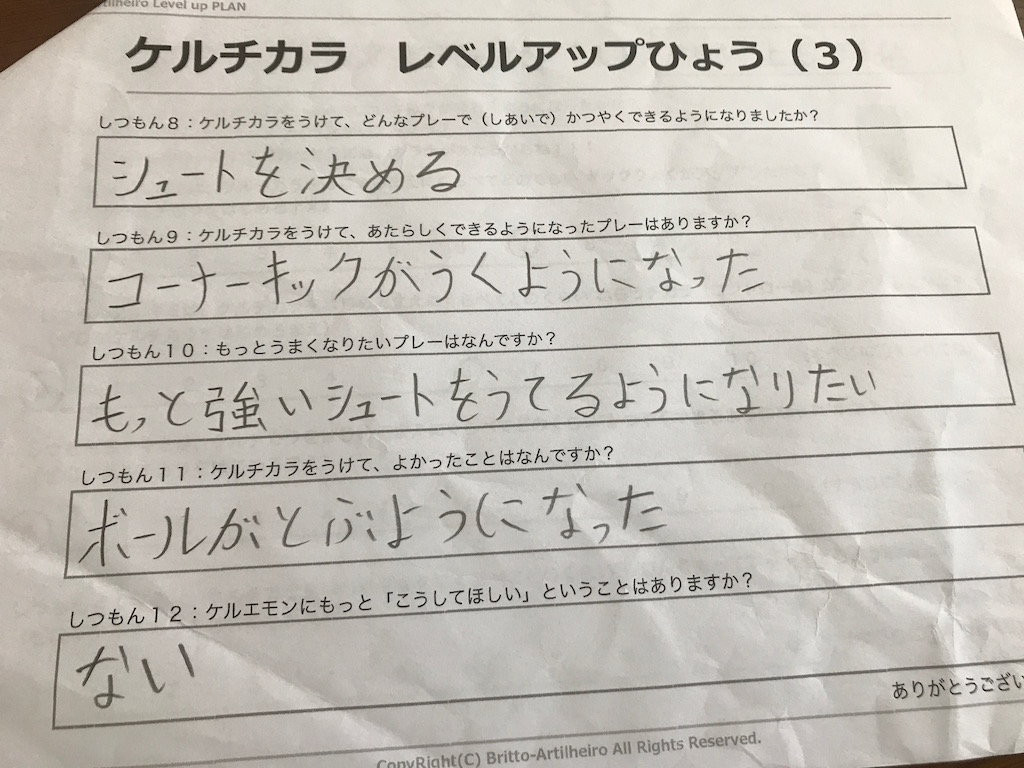 Artilheiro Level up PLAN
ケルチカラ　レベルアップひょう（３）
しつもん８：ケルチカラをうけて、どんなプレーで（しあいで）かつやくできるようになりましたか？
シュートを決める
しつもん９：ケルチカラをうけて、あたらしくできるようになったプレーはありますか？
コーナーキックがうくようになった
しつもん１０：もっとうまくなりたいプレーはなんですか？
もっと強いシュートをうてるようになりたい
しつもん１１：ケルチカラをうけて、よかったことはなんですか？
ボールがとぶようになった
しつもん１２：ケルエモンにもっと「こうしてほしい」ということはありますか？
ない
ありがとうござい
CopyRight(C) Britto-Artilheiro All Rights Reserved.